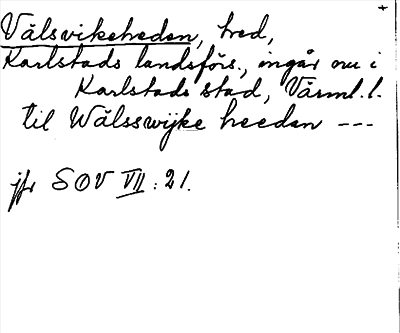 Välsvikeheden, hed,
Karlstads landsförs., ingår nu i
Karlstads stad, Värml. l.
til Wälsswijke heedan ---
jfr SOV VII : 21.